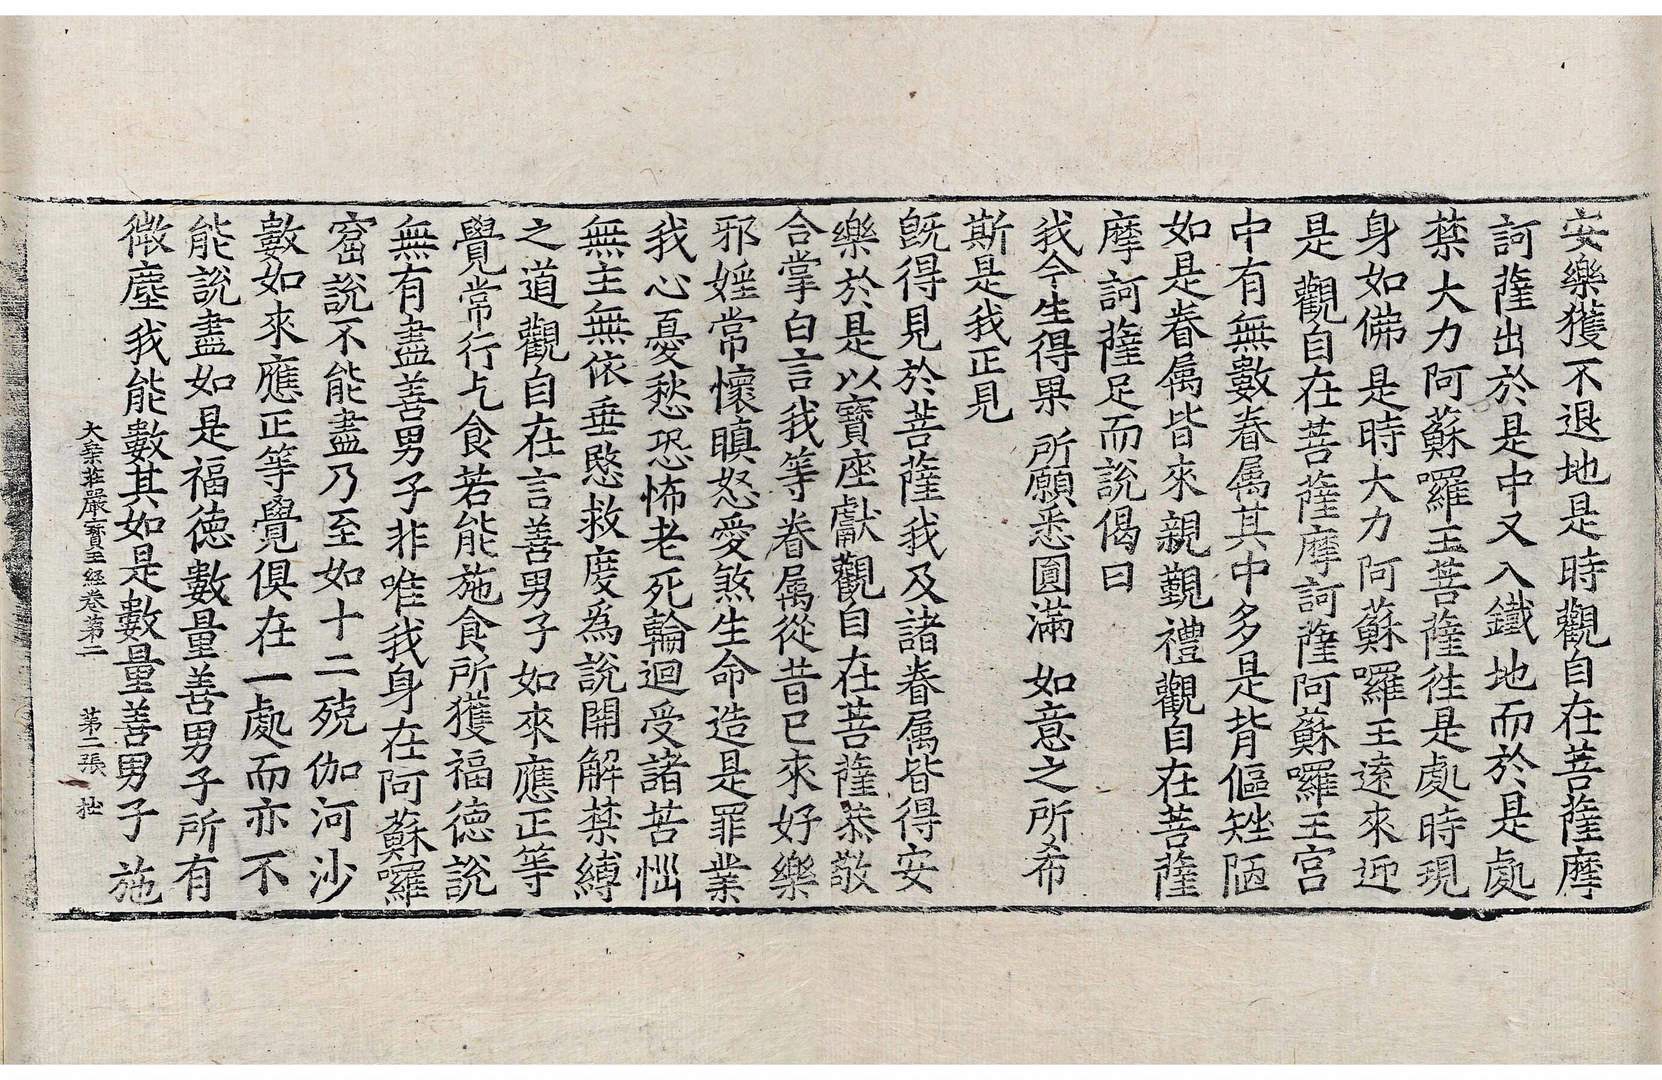 安樂獲不退地是時觀自在菩薩摩
訶薩出於是中又入鐵地而於是處
禁大力阿蘇囉王菩薩往是處時現
身如佛是時大力阿蘇囉王遠來迎
是觀自在菩薩摩訶薩阿蘇囉王宮
中有無數眷属其中多是背傴矬陋
如是眷属皆來親覲禮觀自在菩薩
摩訶薩足而說偈曰
我今生得果 所願悉圓滿 如意之所希
斯是我正見
旣得見於菩薩我及諸眷属皆得安
樂於是以寶座獻觀自在菩薩恭敬
合掌白言我等眷属從昔已來好樂
邪婬常懷瞋怒愛煞生命造是罪業
我心憂愁恐怖老死輪迴受諸苦惱
無主無依垂愍救度為說開解禁縛
之道觀自在言善男子如來應正等
覺常行乞食若能施食所獲福徳說
無有盡善男子非唯我身在阿蘇囉
窟說不能盡乃至如十二殑伽河沙
數如來應正等覺俱在一處而亦不
能說盡如是福徳數量善男子所有
微塵我能數其如是數量善男子施
大乗莊嚴寳王經卷第二 第二張 拙